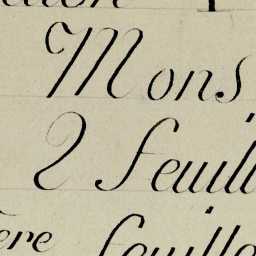 Mons
2 feuill
ere feuille